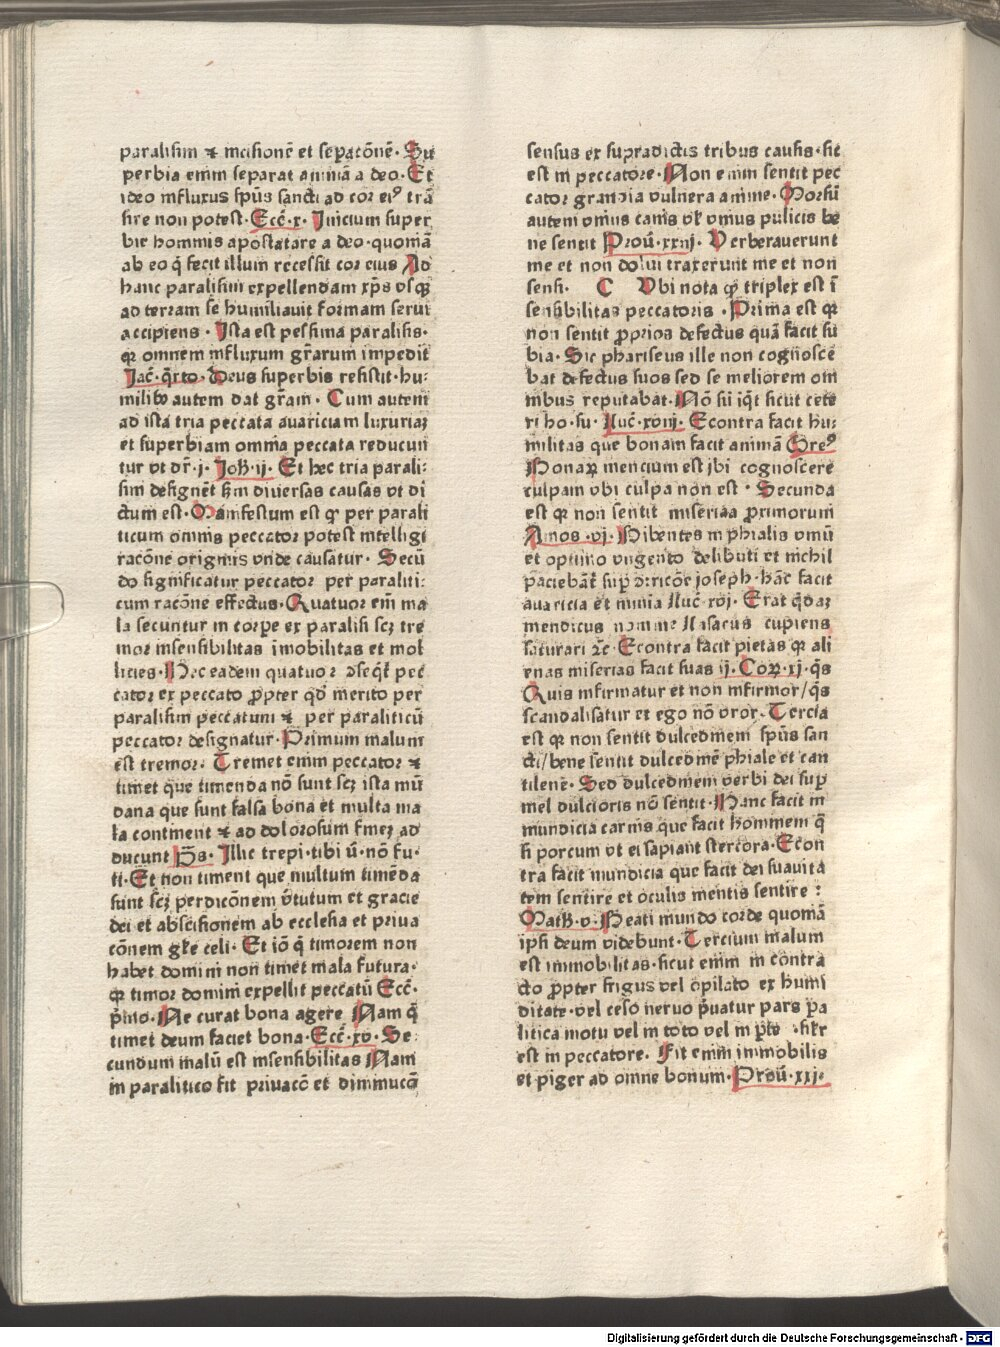 paralisim ⁊ incisionē et sepacōnē· Su
perbia enim separat animā a deo· Et
ideo influxus spūs sancti ad cor eiꝰ trā
sire non potest· Ecc̄· x· Inicium super
bie hominis apostatare a deo· quoniā
ab eo q̄ fecit illum recessit cor eius Ad
hanc paralisim expellendam xp̄s vsqꝫ
ad terram se humiliauit formam serui
accipiens· Ista est pessima paralisis·
qꝛ omnem influxum gr̄arum impedit
Jac̄· q̄rto· Deus superbis resistit· hu⸗
milibꝰ autem dat gr̄am· Cum autem
ad ista tria peccata auariciam luxuriaꝫ
et superbiam omnia peccata reducun
tur vt dr̄· j· Joh̄· ij· Et hec tria parali⸗
sim designēt ẜm diuersas causas vt di
ctum est· Manifestum est qꝫ per parali
ticum omnis peccator potest intelligi
racōne originis vnde causatur· Secū
do significatur peccator per paraliti⸗
cum racōne effectus· Quatuor em̄ ma
la secuntur in corpe ex paralisi scꝫ tre
mor insensibilitas īmobilitas et mol
licies· Hec eadem quatuor ꝯseq̄t pec
cator ex peccato ꝓpter qd̄ merito per
paralisim peccatum ⁊ per paraliticū
peccator designatur· Primum malum
est tremor· Tremet enim peccator ⁊
timet que timenda nō sunt scꝫ ista mū
dana que sunt falsa bona et multa ma
la continent ⁊ ad dolorosum fineꝫ ad
ducunt p̄s· Illic trepi· tibi ū· nō fu·
ti· Et non timent que multum timēda
sunt scꝫ perdicōnem v̄tutum et gracie
dei et abscisionem ab ecclesia et priua
cōnem gl̄e celi· Et iō q̄ timorem non
habet domini non timet mala futura·
qꝛ timor domini expellit peccatū Ecc̄·
p̄mo· Ne curat bona agere Nam q̄
timet deum faciet bona· Ecc̄· xv· Se⸗
cundum malū est insensibilitas Nam
in paralitico fit priuacō et diminucō
sensus ex supradictis tribus causis· sit
est in peccatore· Non enim sentit pec
cator grandia vulnera anime· Morsū
autem vnius canis vl̄ vnius pulicis be
ne sentit Prou̅· xxiij· Verberauerunt
me et non dolui traxerunt me et non
sensi· C Vbi nota qꝫ triplex est ī
sensibilitas peccatoris· Prima est qꝛ
non sentit ꝓprios defectus quā facit su
bia· Sic phariseus ille non cognosce
bat defectus suos sed se meliorem om
nibus reputabat· Nō sū iqt̄ sicut cete
ri ho· su· Luc̄· xviij· Econtra facit hu⸗
militas que bonam facit animā Greꝰ
Bonaꝝ mencium est ibi cognoscere
culpam vbi culpa non est· Secunda
est qꝛ non sentit miseriaa ꝓximorum
Amos· vj· Bibentes in phialis vinū
et optimo vngento delibuti et nichil
paciebāt sup ꝯtricōe joseph· hāc facit
auaricia et inuia Luc̄ xvj· Erat q̄daꝫ
mendicus nomine Lasarus cupiens
saturari ⁊c̄· Econtra facit pietas qꝛ ali
enas miserias facit suas ij· Coꝝ· xj· q̄s
Quis infirmatur et non infirmor/q̄s
scandalisatur et ego nō vror· Tercia
est qꝛ non sentit dulcedinem spūs san
cti/bene sentit dulcedinē phiale et can
tilene· Sed dulcedinem verbi dei sup
mel dulcioris nō sentit· Hanc facit in
mundicia carnis que facit hominem q̄
si porcum vt ei sapiant stercora· Econ
tra facit mundicia que facit dei suauita
tem sentire et oculis mentis sentire :
Math· v· Beati mundo corde quoniā
ipsi deum videbunt· Tercium malum
est immobilitas· sicut enim in contra
cto ꝓpter frigus vel opilato ex humi
ditate· vel ceso neruo p̄uatur pars pa
litica motu vel in toto vel in pte· sil̄r
est in peccatore· Fit enim immobilis
et piger ad omne bonum· Prou̅· xxj·
Digitalisierung gefördert durch die Deutsche Forschungsgemeinschaft - DFG